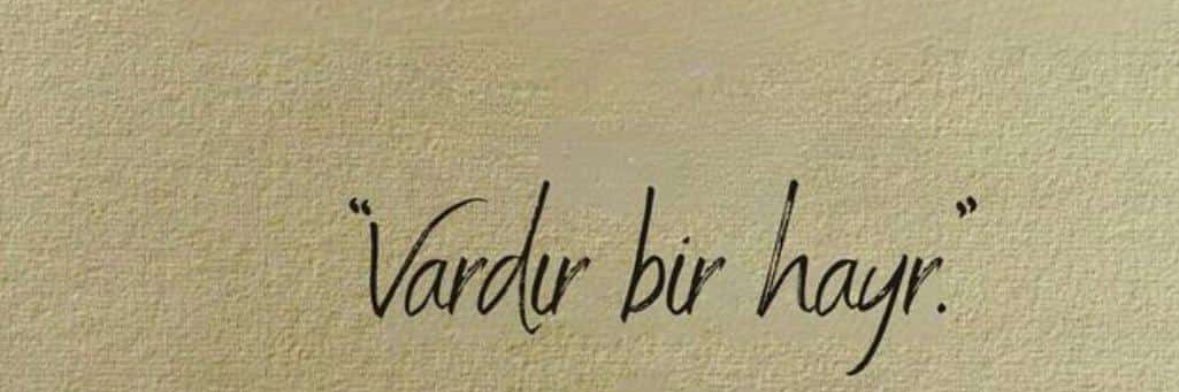 “Vardır bir hayr.”